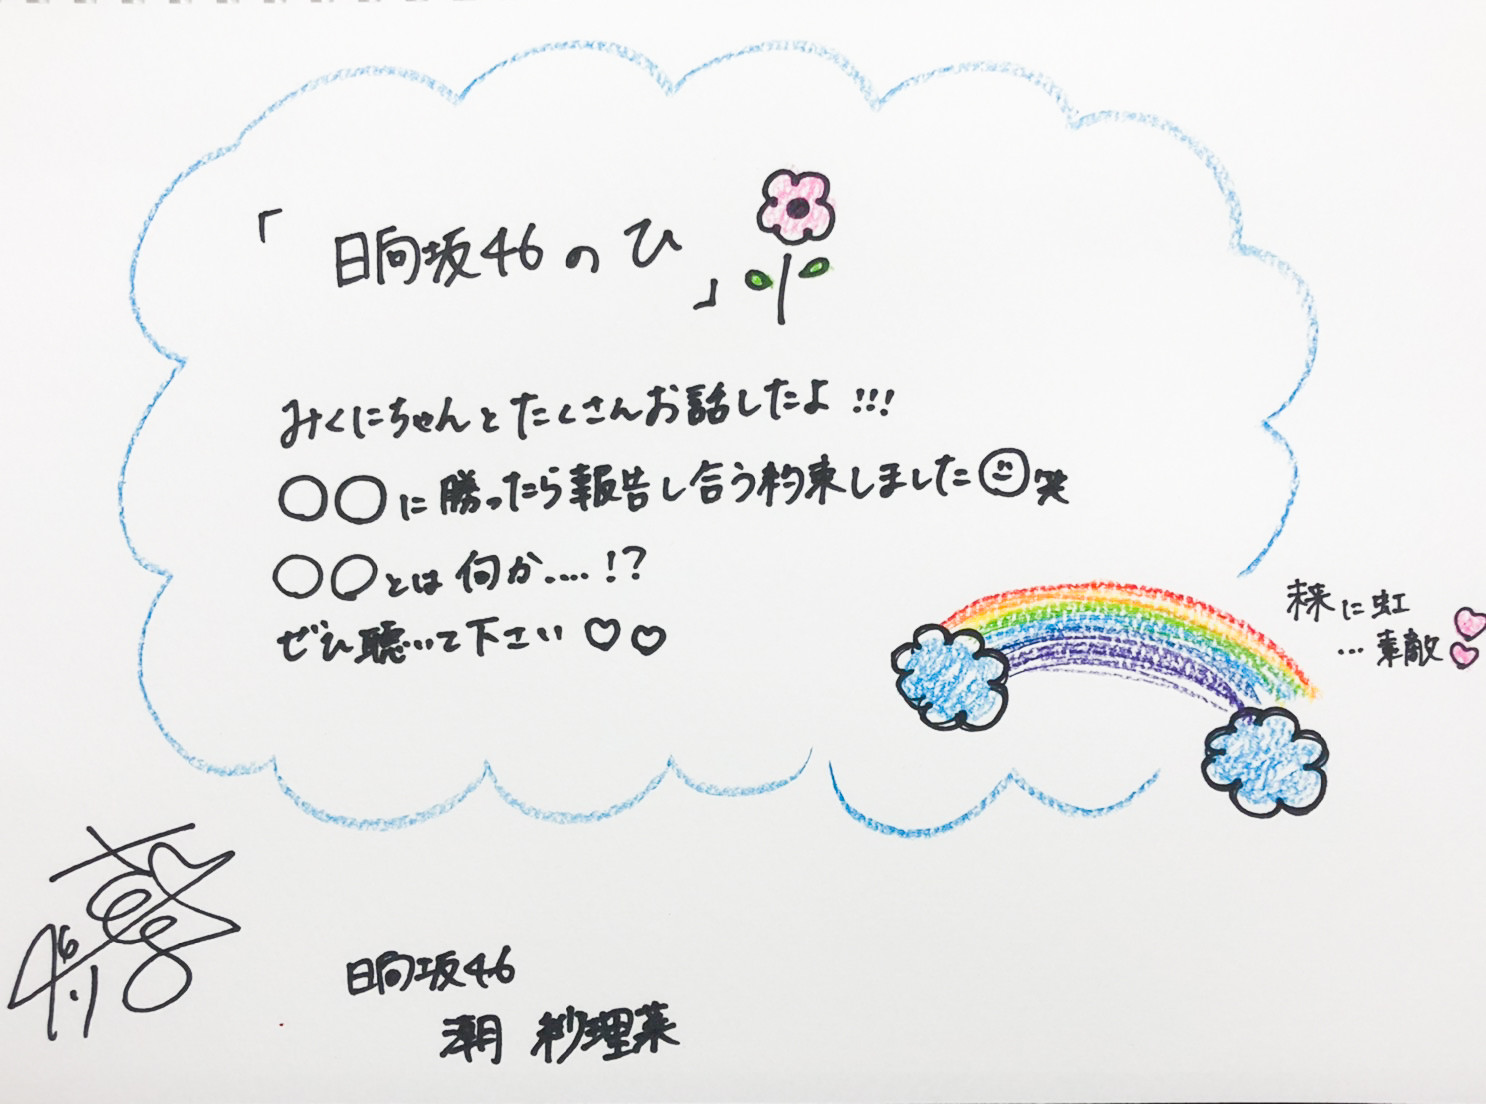 「日向坂46のひ」
みくにちゃんとたくさんお話したよ!!!
○○に勝ったら報告し合う約束しました笑
○○とは何か....!?
ぜひ聴いて下さい♡♡
未来に虹
…素敵
46
日向坂46
潮 紗理菜